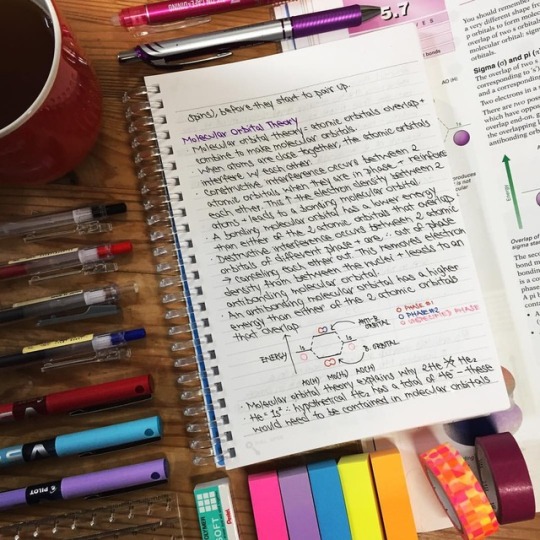 spins) before they start to pair up.
Molecular Orbital Theory
· Molecular orbital theory = atomic orbitals overlap +
combine to make molecular orbitals.
· When atoms are close together, the atomic orbitals
interfere w/ each other.
· Constructive interference occurs between 2
atomic orbitals when they are in phase + reinforce
each other. This ↑ the electron density between 2
atoms + leads to a bonding molecular orbital.
· A bonding molecular orbital has a lower energy
than either of the 2 atomic orbitals that overlap.
· Destructive interference occurs between 2 atomic
orbitals of different phase + are ∴ out of phase
→ cancelling each other out. This removes electron
density from between the nuclei + leads to an
antibonding molecular orbital.
· An antibonding molecular orbital has a higher
energy than either of the 2 atomic orbitals
that overlap
PHASE #1
PHASE #2
UNDEFINED PHASE
ANTI-B ORBITAL
ENERGY
1s
1s
B. ORBITAL
AO(H) MO(H₂) AO(H)
· Molecular orbital theory explains why 2He ↛ He₂
· He = 1s² ∴ hypothetical He₂ has a total of 4e⁻ – these
would need to be contained in molecular orbitals
5.7
bonds
You should remember
a very different shape from
p orbitals to form
overlap of two s orbitals
molecular orbital: sigma
Sigma (σ) and pi (
The overlap of two s
corresponding to
and a corresponding
Two electrons in a
There are two possi
which have opposi
overlap end-on, g
the overlapping
antibonding orbi
Energy
Overlap of
sigma star
The seco
bond m
bond is
is a co
phase
A pi
consist
PILOT
SOFT
Pentel